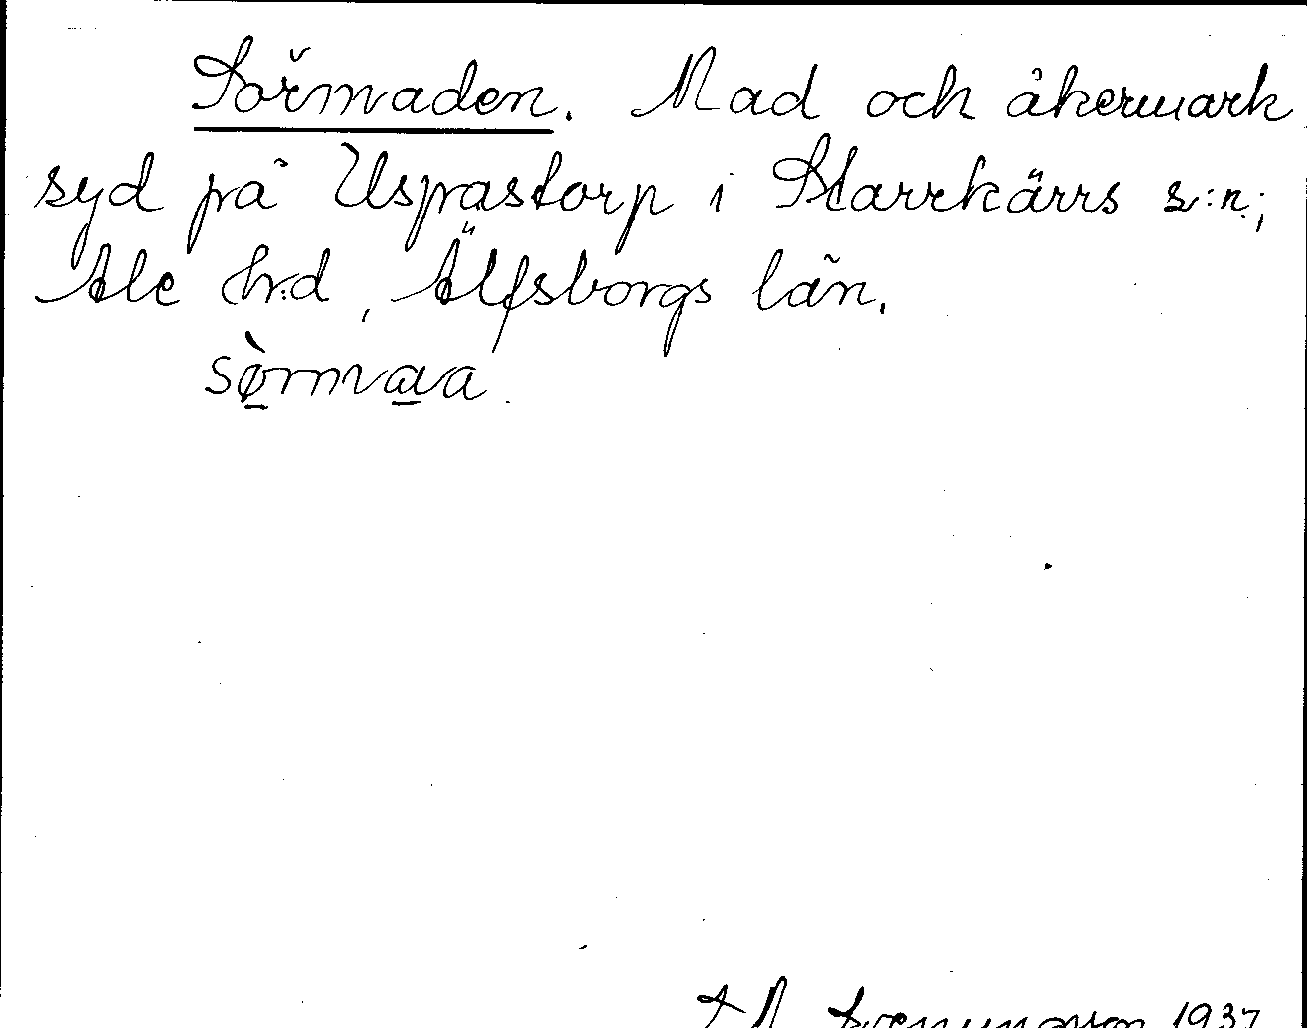 Sörmaden. Mad och åkermark
syd på Uspastorp i Starrkärrs s:n;
Ale h:d, Älfsborgs län.
sø̀rmaa
1937